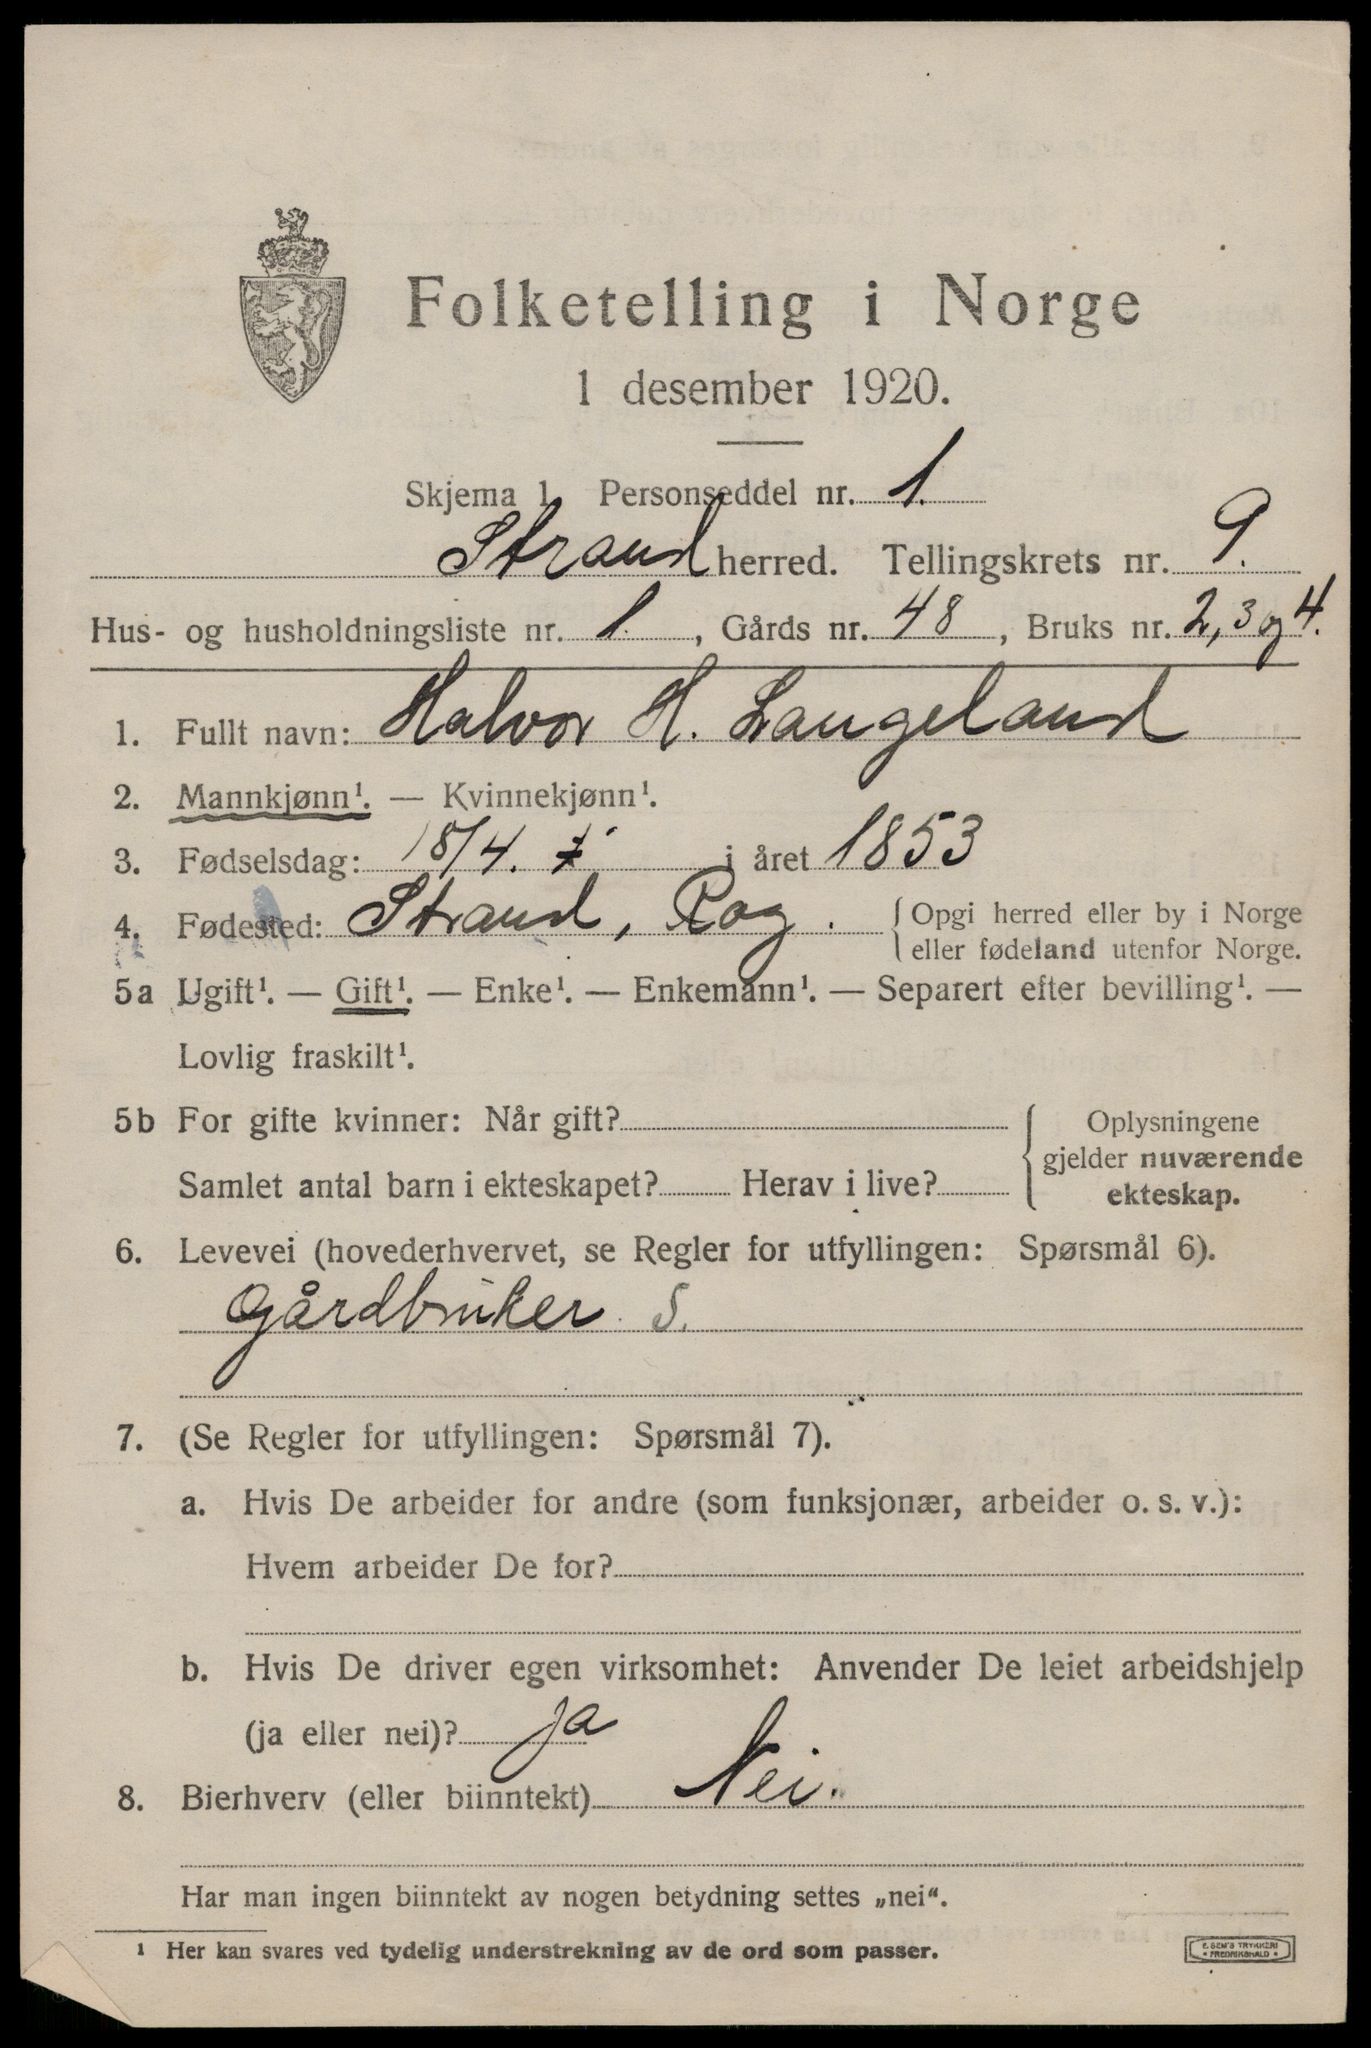 Folketelling i Norge
1 desember 1920.
Skjema 1 Personseddel nr. 1.
Strand herred. Tellingskrets nr. 9.
Hus- og husholdningsliste nr. 1., Gårds nr. 48, Bruks nr. 2, 3 og 4.
1. Fullt navn: Halvor H. Langeland
2. Mannkjønn¹. — Kvinnekjønn¹.
3. Fødselsdag: 18/4. i året 1853
4. Fødested: Strand, Rog. { Opgi herred eller by i Norge
eller fødeland utenfor Norge.
5a Ugift¹. — Gift¹. — Enke¹. — Enkemann¹. — Separert efter bevilling¹. —
Lovlig fraskilt¹.
5b For gifte kvinner: Når gift? { Oplysningene
gjelder nuværende
Samlet antal barn i ekteskapet? Herav i live? ekteskap.
6. Levevei (hovederhvervet, se Regler for utfyllingen: Spørsmål 6).
Gårdbruker S.
7. (Se Regler for utfyllingen: Spørsmål 7).
a. Hvis De arbeider for andre (som funksjonær, arbeider o. s. v.):
Hvem arbeider De for?
b. Hvis De driver egen virksomhet: Anvender De leiet arbeidshjelp
(ja eller nei)? ja
8. Bierhverv (eller biinntekt) Nei.
Har man ingen biinntekt av nogen betydning settes „nei“.
¹ Her kan svares ved tydelig understrekning av de ord som passer.
E. SEM'S TRYKKERI
• FREDRIKSHALD •